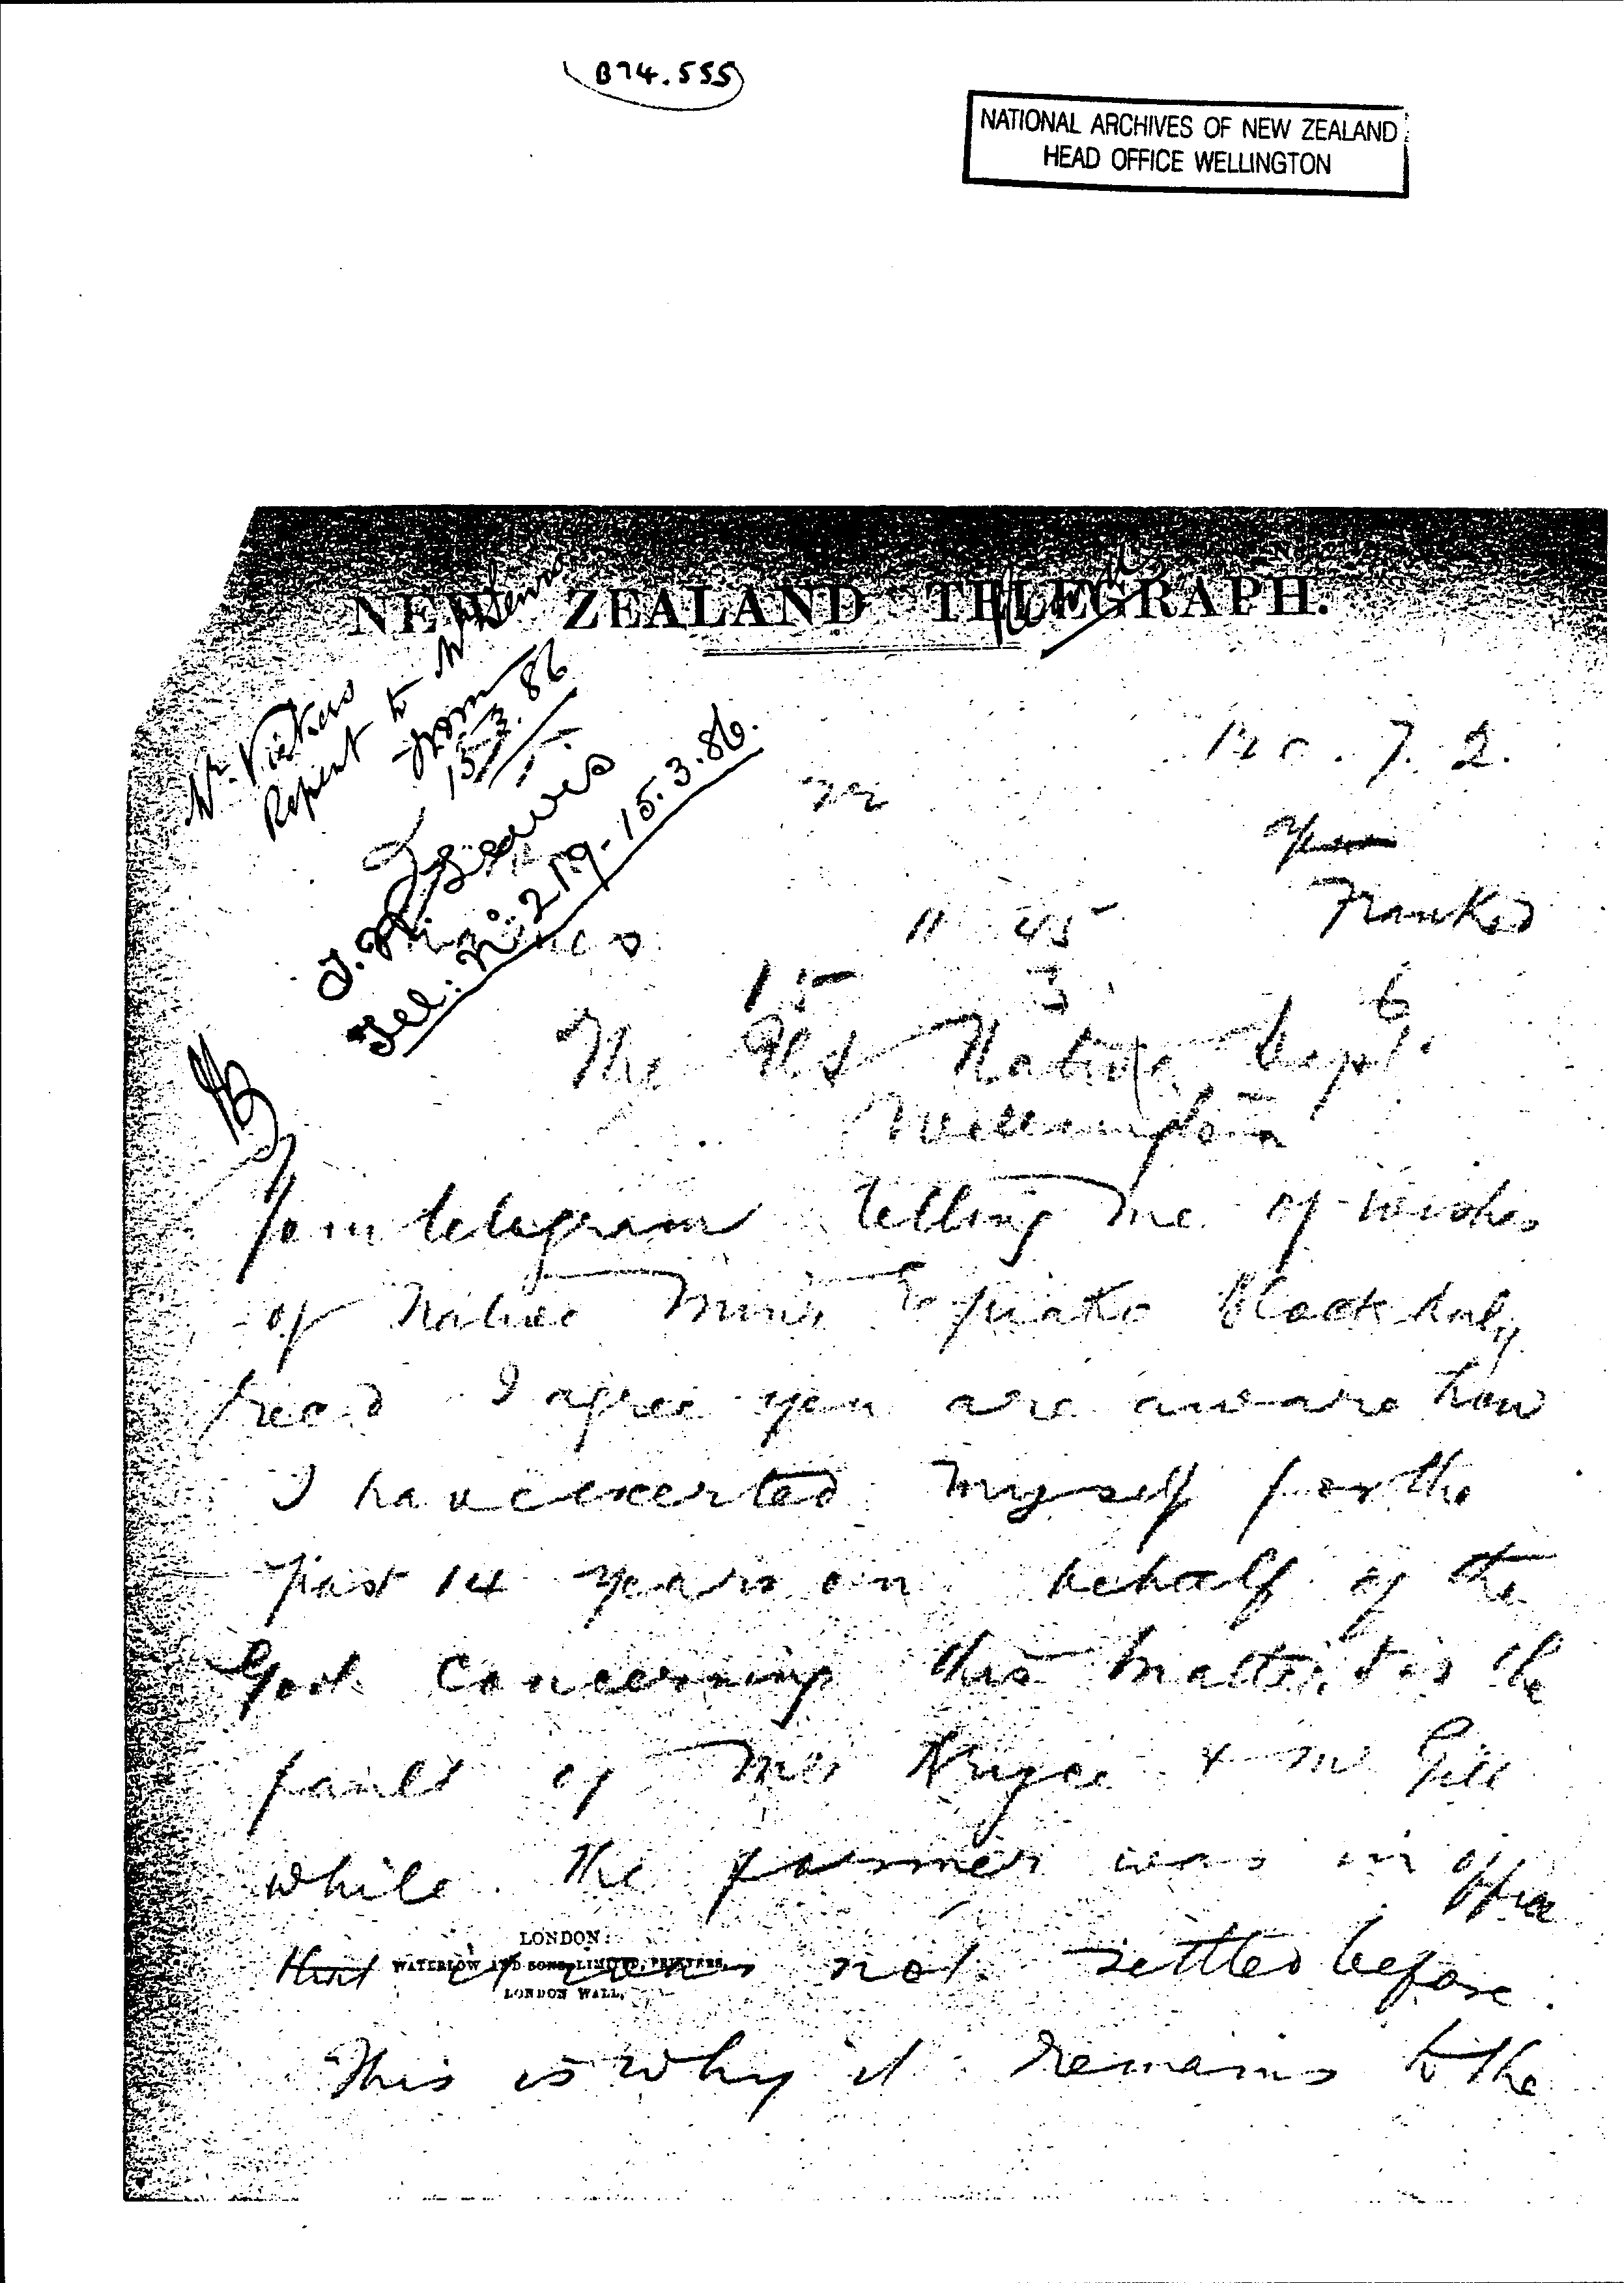 B74.555
NATIONAL ARCHIVES OF NEW ZEALAND
HEAD OFFICE WELLINGTON
NEW ZEALAND TELEGRAPH.
Mr. Vickers
Repeat to Mr
from
15.3.86
Tel: No. 219 - 15.3.86.
No. 7. 2.
11 45 Franked
15 3 6
The U S Native Dept.
Wellington
Your telegram telling me of wishes
of Native Minr Te piako Block duly
recd I agree you are aware how
I have exerted myself for the
past 14 years on behalf of the
Govt concerning this matter, it is the
fault of Mr Bryce & Mr Gill
while the former was in office
that it was not settled before.
This is why it remains to the
LONDON:
WATERLOW AND SONS LIMITED, PRINTERS,
LONDON WALL,